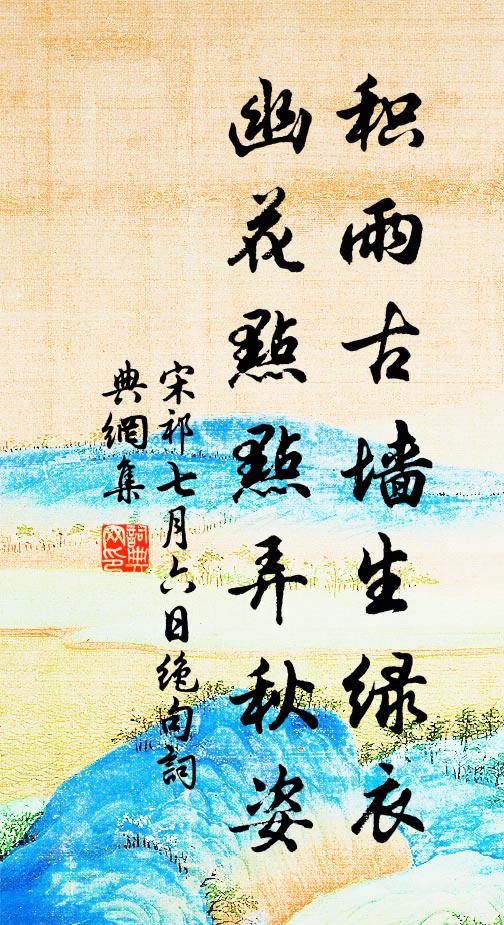 积雨古墙生绿衣
幽花點點弄秋姿
宋祁七月六日绝句詞
典網集
詞典
网印